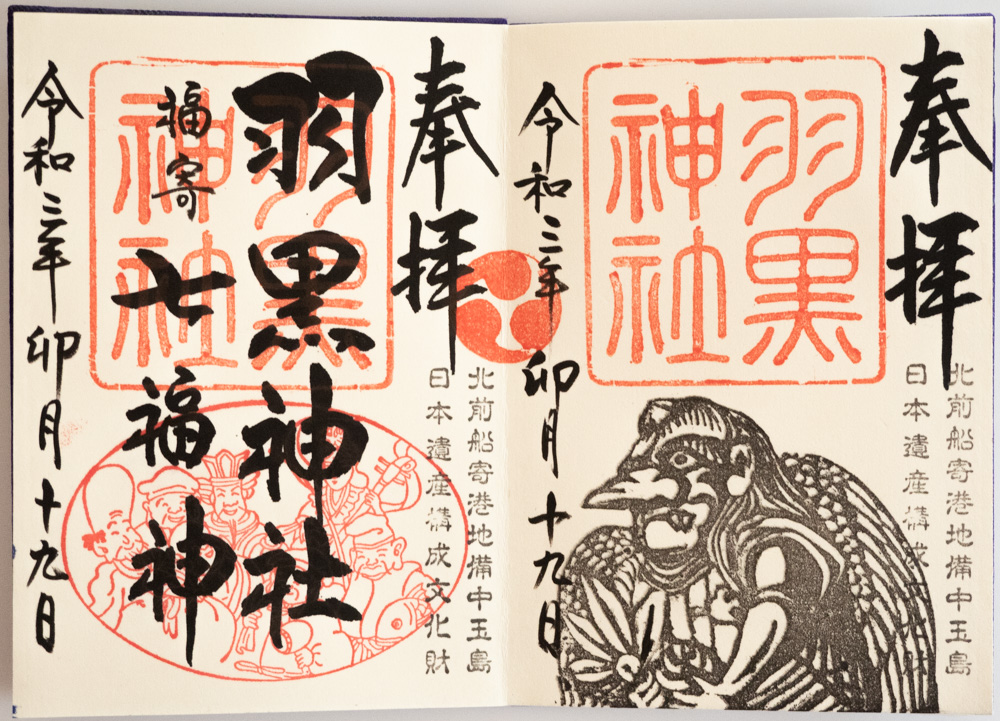 奉拝
北前船寄港地備中玉島
日本遺産構成文化財
羽黒
神社
令和三年卯月十九日
奉拝
北前船寄港地備中玉島
日本遺産構成文化財
羽黒神社
羽黒
神社
福寄
七福神
令和三年卯月十九日